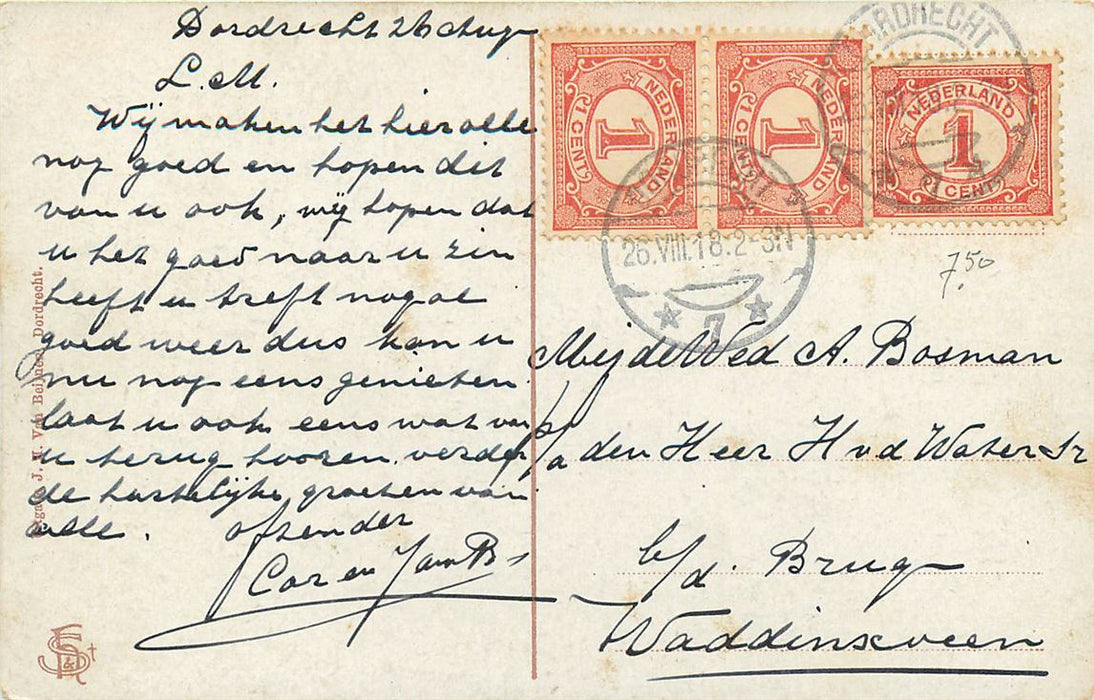 Dordrecht 26 Aug
L. M.
Wij maken het hier alle
nog goed en hopen dit
van u ook, wij hopen dat
u het goed naar u zin
heeft u treft nogal
goed weer dus kan u
nu nog eens genieten.
laat u ook eens wat van
u terug hooren verder
de hartelijke groeten van
alle. afzender
Cor en Jan B
NEDERLAND
1
1 CENT
NEDERLAND
1
1 CENT
NEDERLAND
1
1 CENT
DORDRECHT
26.VIII.18.2-3N
7
7.50
Mej de Wed A. Bosman
p/a den Heer H v d Water Sr
b/d. Brug
Waddinxveen
J. H. Van Beijnen, Dordrecht.